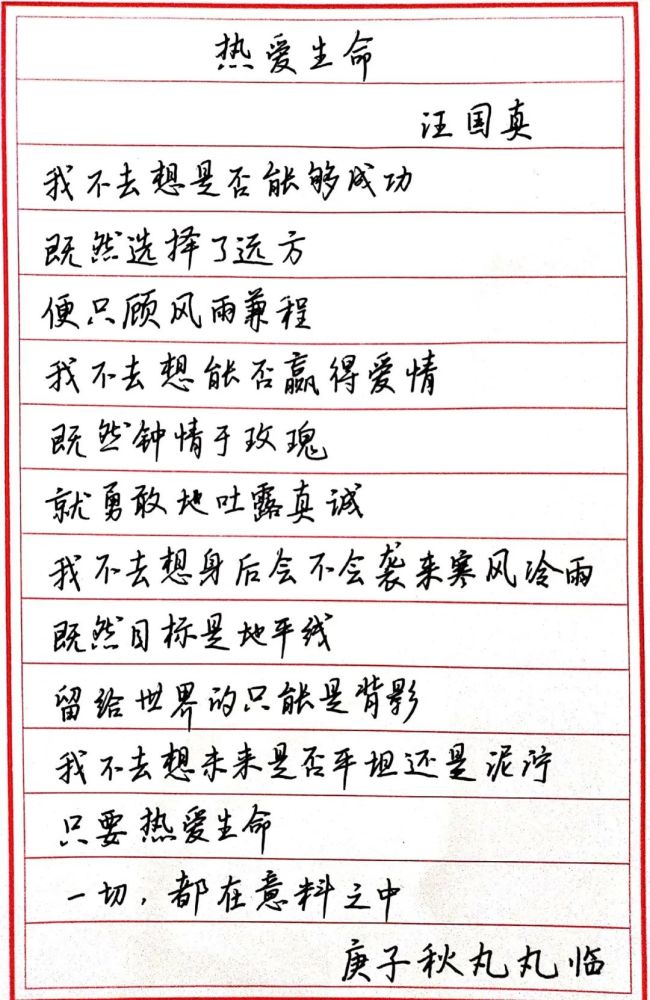 热爱生命
汪国真
我不去想是否能够成功
既然选择了远方
便只顾风雨兼程
我不去想能否赢得爱情
既然钟情于玫瑰
就勇敢地吐露真诚
我不去想身后会不会袭来寒风冷雨
既然目标是地平线
留给世界的只能是背影
我不去想未来是否平坦还是泥泞
只要热爱生命
一切，都在意料之中
庚子秋丸丸临